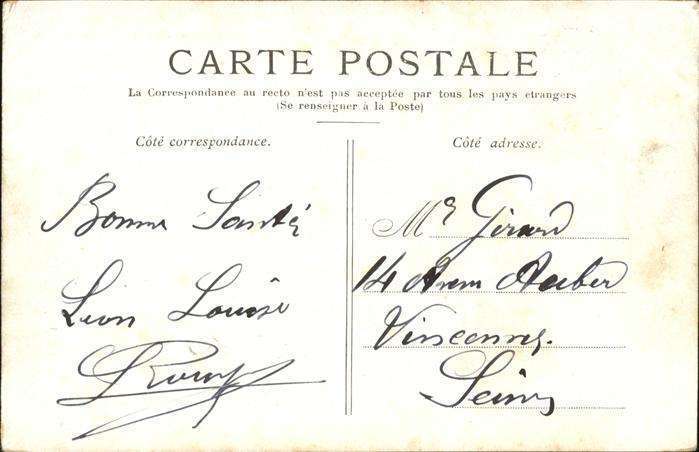 CARTE POSTALE
La Correspondance au recto n'est pas acceptée par tous les pays etrangers
(Se renseigner à la Poste)
Côté correspondance.
Bonne Santé
Léon Louise
Côté adresse.
Mr Girard
14 Auber
Vincennes.
Seine